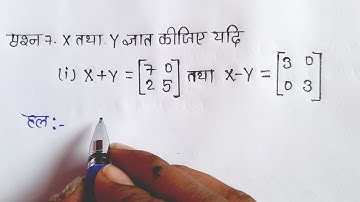 प्रश्न 7. X तथा Y ज्ञात कीजिए यदि
(i) X+Y = [7 0 तथा X-Y = [3 0
2 5] 0 3]
हल :-